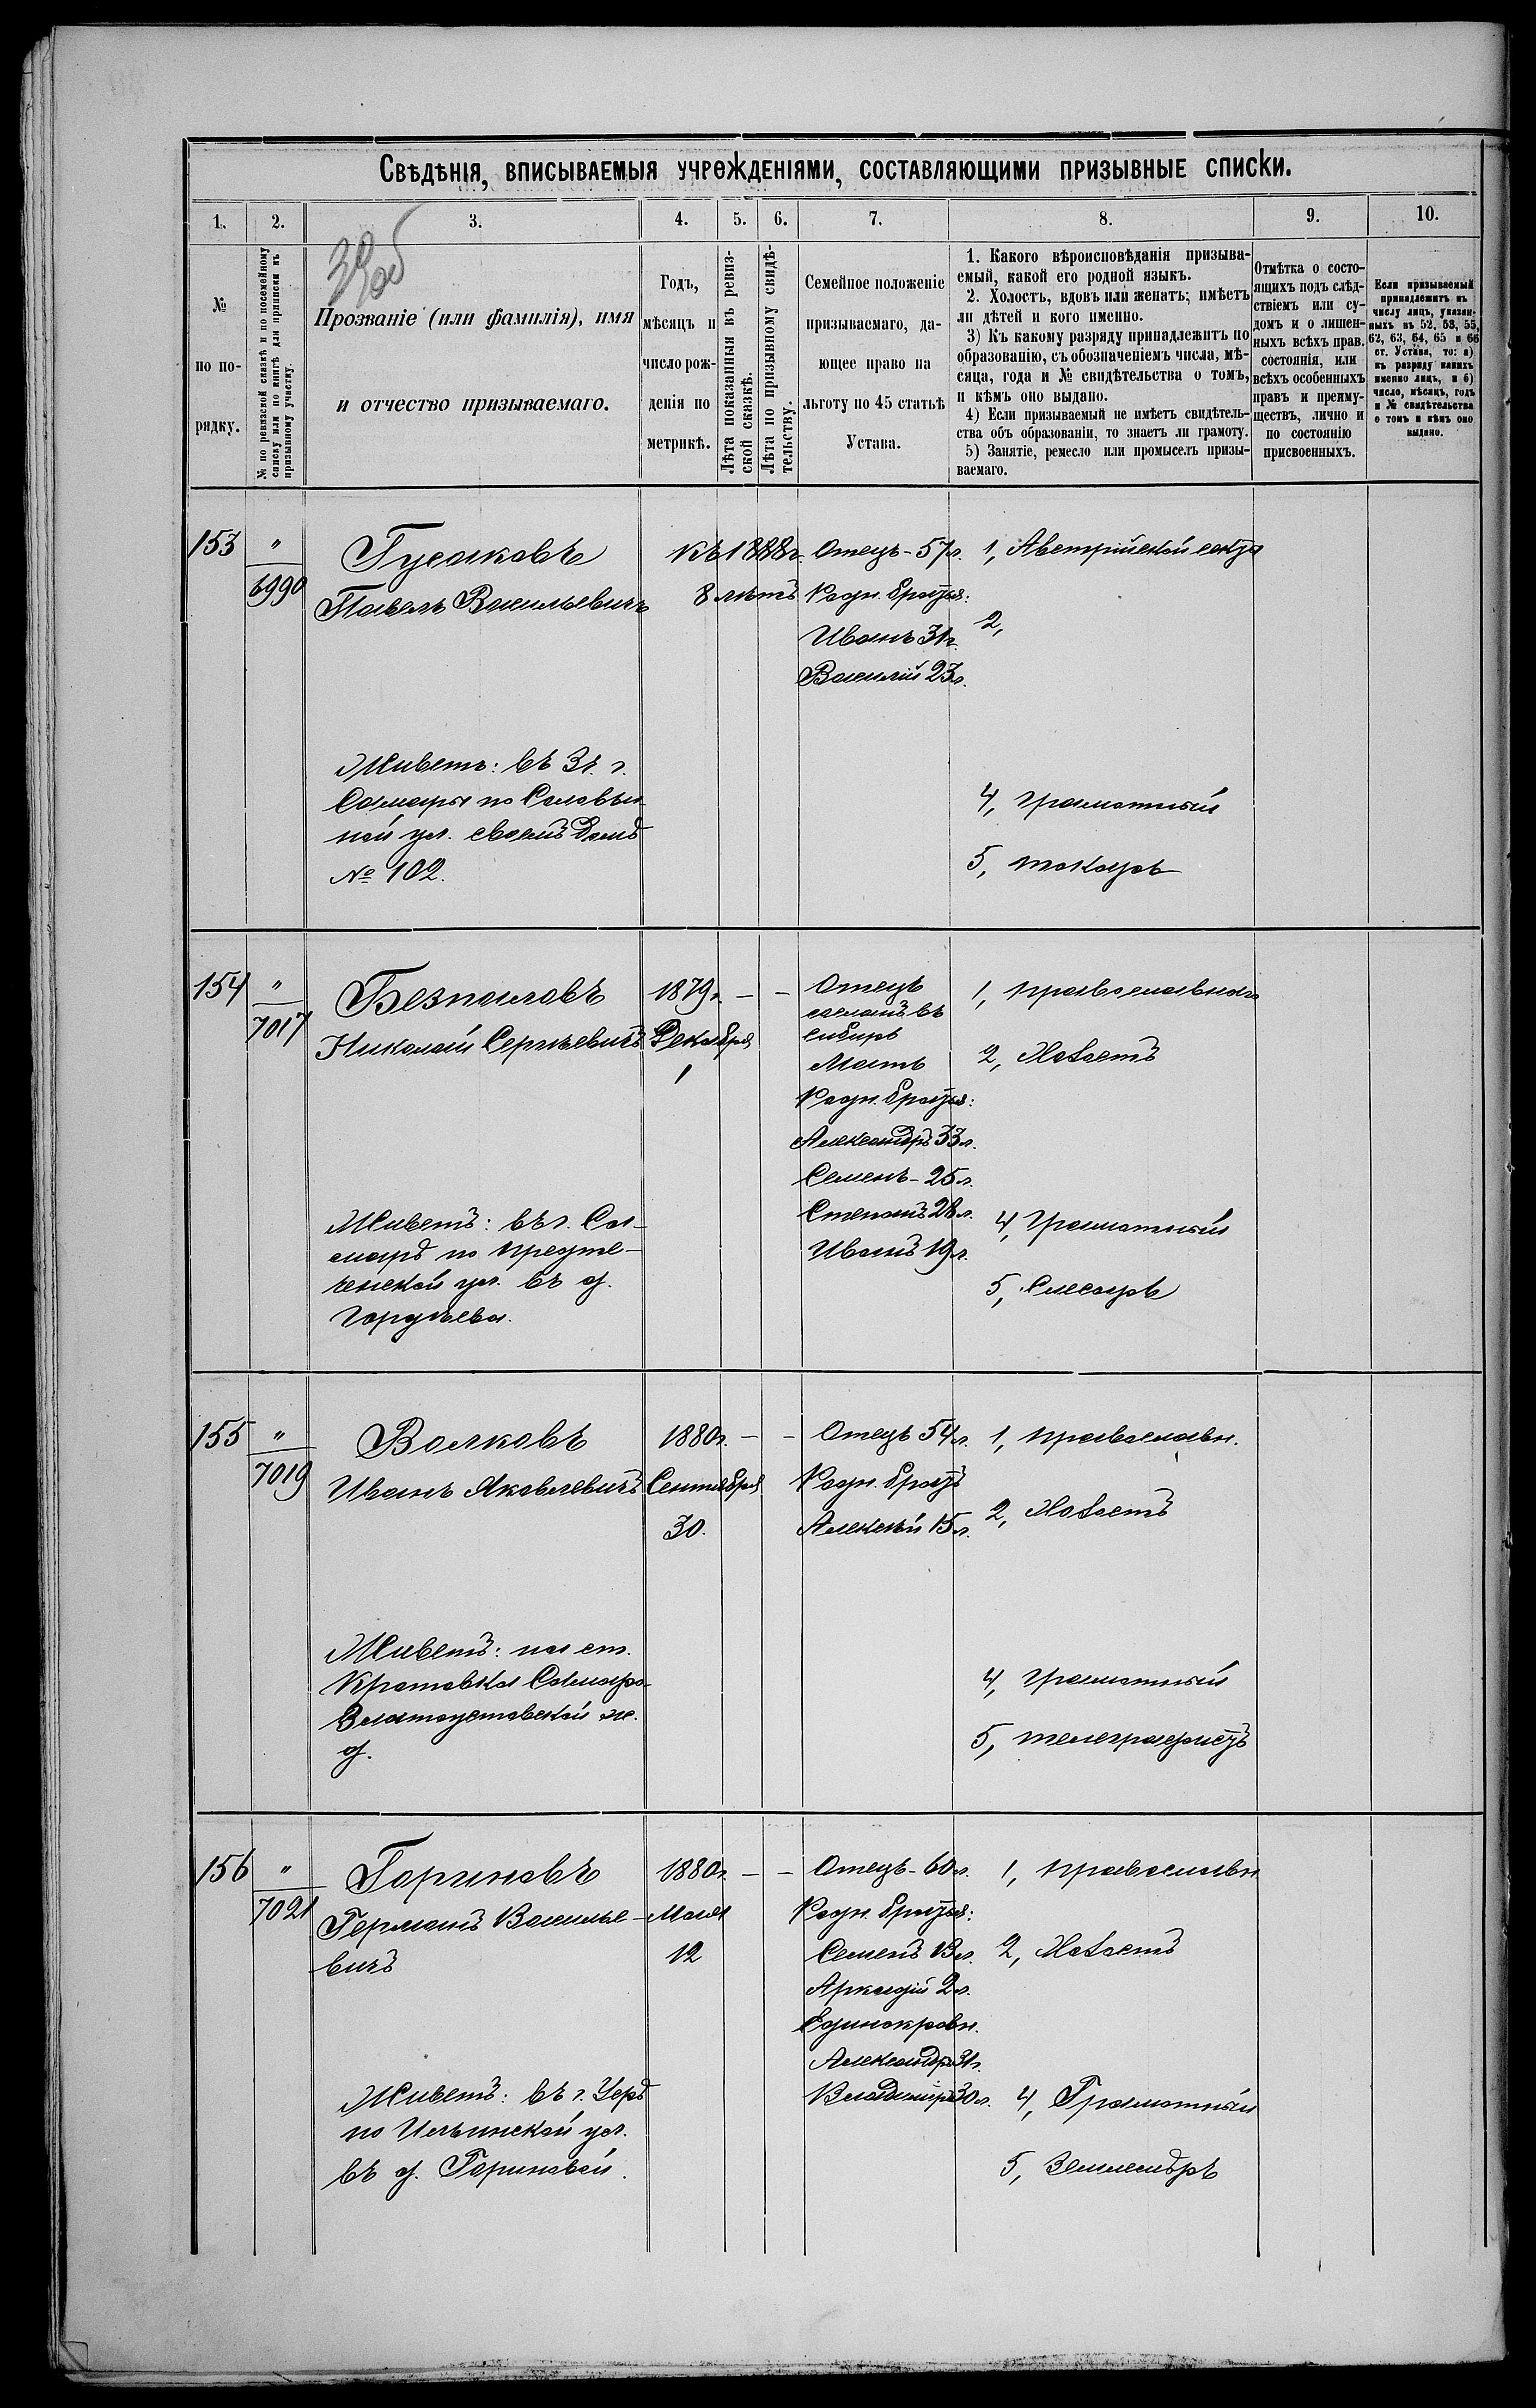 Свѣдѣнія, вписываемыя учрежденіями, составляющими призывные списки.
1. 2. 3. 4. 5. 6. 7. 8. 9. 10.
№
по по-
рядку.
№ по ревизской сказкѣ и по посемейному
списку или по книгѣ для приписки къ
призывному участку.
Прозваніе (или фамилія), имя
и отчество призываемаго.
Годъ,
мѣсяцъ и
число рож-
денія по
метрикѣ.
Лѣта показанныя въ ревиз-
ской сказкѣ.
Лѣта по призывному свидѣ-
тельству.
Семейное положеніе
призываемаго, да-
ющее право на
льготу по 45 статьѣ
Устава.
1. Какого вѣроисповѣданія призыва-
емый, какой его родной языкъ.
2. Холостъ, вдовъ или женатъ; имѣетъ
ли дѣтей и кого именно.
3) Къ какому разряду принадлежитъ по
образованію, съ обозначеніемъ числа, мѣ-
сяца, года и № свидѣтельства о томъ,
и кѣмъ оно выдано.
4) Если призываемый не имѣетъ свидѣтель-
ства объ образованіи, то знаетъ ли грамоту.
5) Занятіе, ремесло или промыселъ призы-
ваемаго.
Отмѣтка о состо-
ящихъ подъ слѣд-
ствіемъ или су-
домъ и о лишен-
ныхъ всѣхъ прав.
состоянія, или
всѣхъ особенныхъ
правъ и преиму-
ществъ, лично и
по состоянію
присвоенныхъ.
Если призываемый
принадлежитъ къ
числу лицъ, указан-
ныхъ въ 52, 53, 55,
62, 63, 64, 65 и 66
ст. Устава, то: а)
къ разряду какихъ
именно лицъ, и б)
число, мѣсяцъ, годъ
и № свидѣтельства
о томъ и кѣмъ оно
выдано.
153
"
6990
Гусаковъ
Павелъ Васильевичъ
Живетъ: въ 3ч. г.
Самары по Соловьи-
ной ул. своемъ домѣ
№ 102.
Къ 1888г.
8 лѣтъ
Отецъ - 57л.
Родн. братья:
Иванъ 31г.
Василій 23л.
1, Австрійской секты
2,
4, грамотный
5, токарь
154
"
7017
Безпаловъ
Николай Сергѣевичъ
Живетъ: въ г. Са-
марѣ по Предте-
ченской ул. въ д.
Гордѣева.
1879г. — —
Декабря
1
Отецъ
сосланъ въ
сибирь
Мать
Родн. братья:
Александръ 33л.
Семенъ - 25л.
Степанъ 28л.
Иванъ 19л.
1, православнаго
2, Холостъ
4, Грамотный
5, Слесарь
155
"
7019
Волковъ
Иванъ Яковлевичъ
Живетъ: на ст.
Кротовка Самаро-
Златоустовской ж.
д.
1880г. — —
Сентября
30.
Отецъ 54л.
Родн. братъ
Алексѣй 15л.
1, православн.
2, Холостъ
4, грамотный
5, телеграфистъ
156
"
7021
Гориновъ
Германъ Василье-
вичъ
Живетъ: въ г. Уфѣ
по Ильинской ул.
въ д. Гориновой.
1880г. — —
Мая
12
Отецъ - 60л.
Родн. братья:
Семенъ 13л.
Аркадій 2л.
Единокровн.
Александръ 31г.
Владиміръ 30л.
1, православн
2, Холостъ
4, Грамотный
5, Землемѣръ